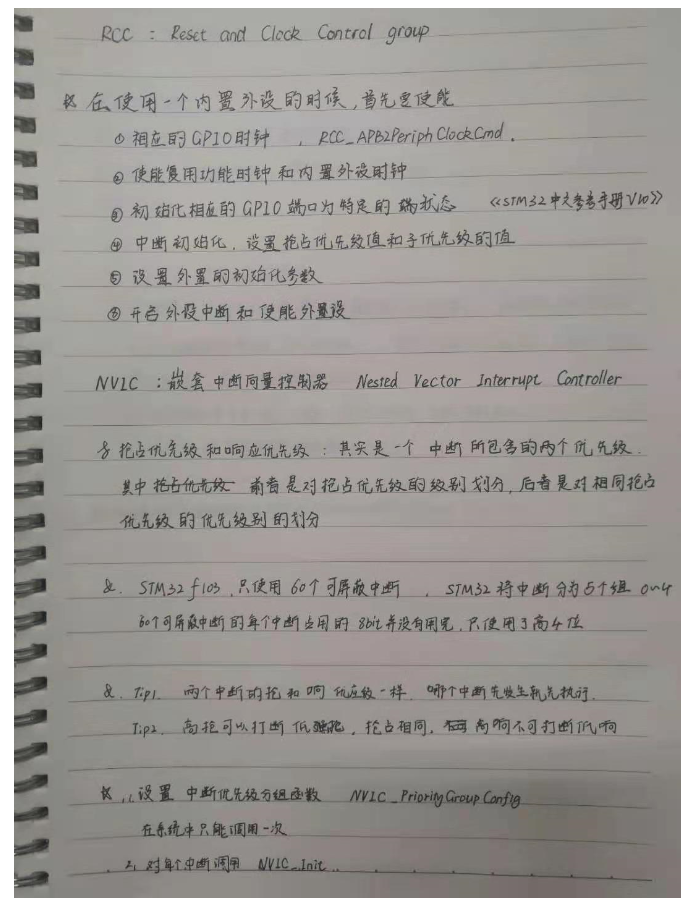 RCC : Reset and Clock Control group
在使用一个内置外设的时候,首先要使能
① 相应的GPIO时钟 , RCC_APB2PeriphClockCmd.
② 使能复用功能时钟和内置外设时钟
③ 初始化相应的GPIO端口为特定的端状态 《STM32中文参考手册V10》
④ 中断初始化,设置抢占优先级值和子优先级的值
⑤ 设置外置的初始化参数
⑥ 开启外设中断和使能外置设
NVIC : 嵌套中断向量控制器 Nested Vector Interrupt Controller
& 抢占优先级和响应优先级 : 其实是一个 中断所包含的两个优先级.
其中 抢占优先级 前者是对抢占优先级的级别划分,后者是对相同抢占
优先级的优先级别的划分
&. STM32f103,只使用60个可屏蔽中断 , STM32将中断分为5个组 0~4
60个可屏蔽中断的每个中断占用的8bit并没有用完,只使用了高4位
&. Tip1. 两个中断的抢和响优先级一样,哪个中断先发生就先执行.
Tip2. 高抢可以打断低抢, 抢占相同, 高响不可打断低响
1, 设置 中断优先级分组函数 NVIC_PriorityGroupConfig
在系统中只能调用一次
2, 对每个中断调用 NVIC_Init